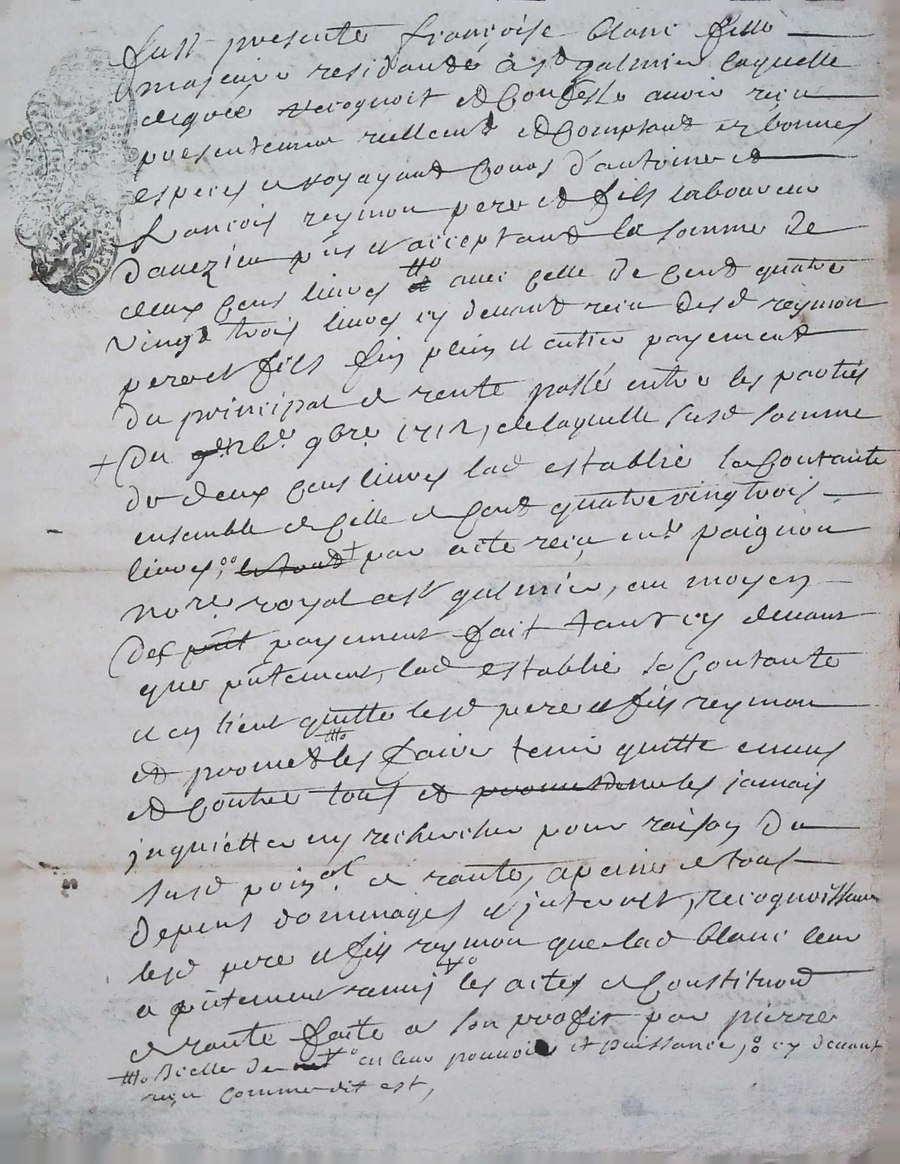 fust presente françoise blanc fille
majeure residande à st galmier laquelle
de gré recognoit et confesse avoir reçu
presentement reellemt et comptant en bonnes
especes et ayant cours d'antoine et
francois reymon pere et fils laboureur
daveizieu pnts et acceptand la somme de
deux cens livres avec celle de cend quatre
vingt trois livres cy devant reçu desd reymon
pere et fils fin plein et entier payement
du principal de rente passé entre les parties
du 9bre 1712, de laquelle susd somme
de deux cens livres lad establie se contante
ensemble de celle de cend quatre vingt trois
livres, par acte reçu me paignon
nore royal a st galmier, au moyen
des payement fait tant cy devant
que pntement, lad establie se contante
et en tient quitte lesd pere et fils reymon
et promet les faire tenir quitte envers
et contre tous et les jamais
jnquietter ny rechercher pour raison du
susd poinal de rante, a peine de tous
depens dommages et jnterest, recognoissant
lesd pere et fils reymon que lad blanc leur
a pntement remis les actes de constitution
de rante faite a son proffit par pierre
en leur pouvoir et puissance, cy devant
reçu comme dit est,